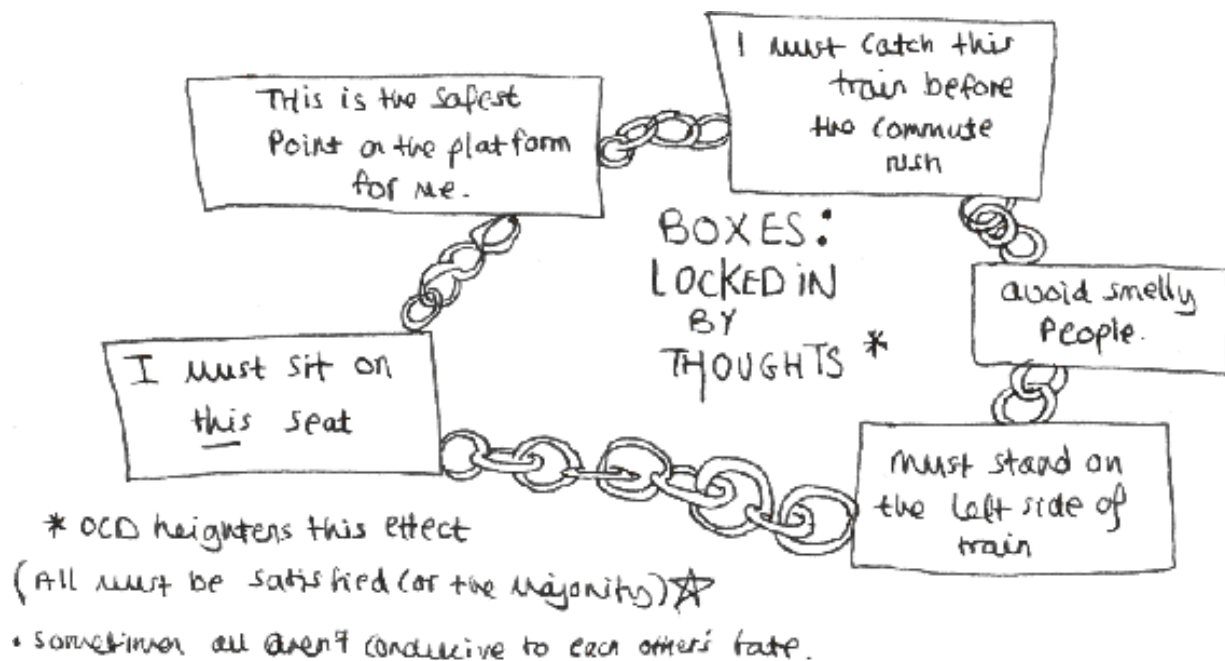 This is the safest
Point on the platform
for me.
I must catch this
train before
the commute
rush
BOXES:
LOCKED iN
BY
THOUGHTS *
avoid smelly
People.
I must sit on
this seat
must stand on
the left side of
train
* OCD heightens this effect
(All must be satisfied (or the Majority) ☆
• sometimes all aren't conducive to each others fate.